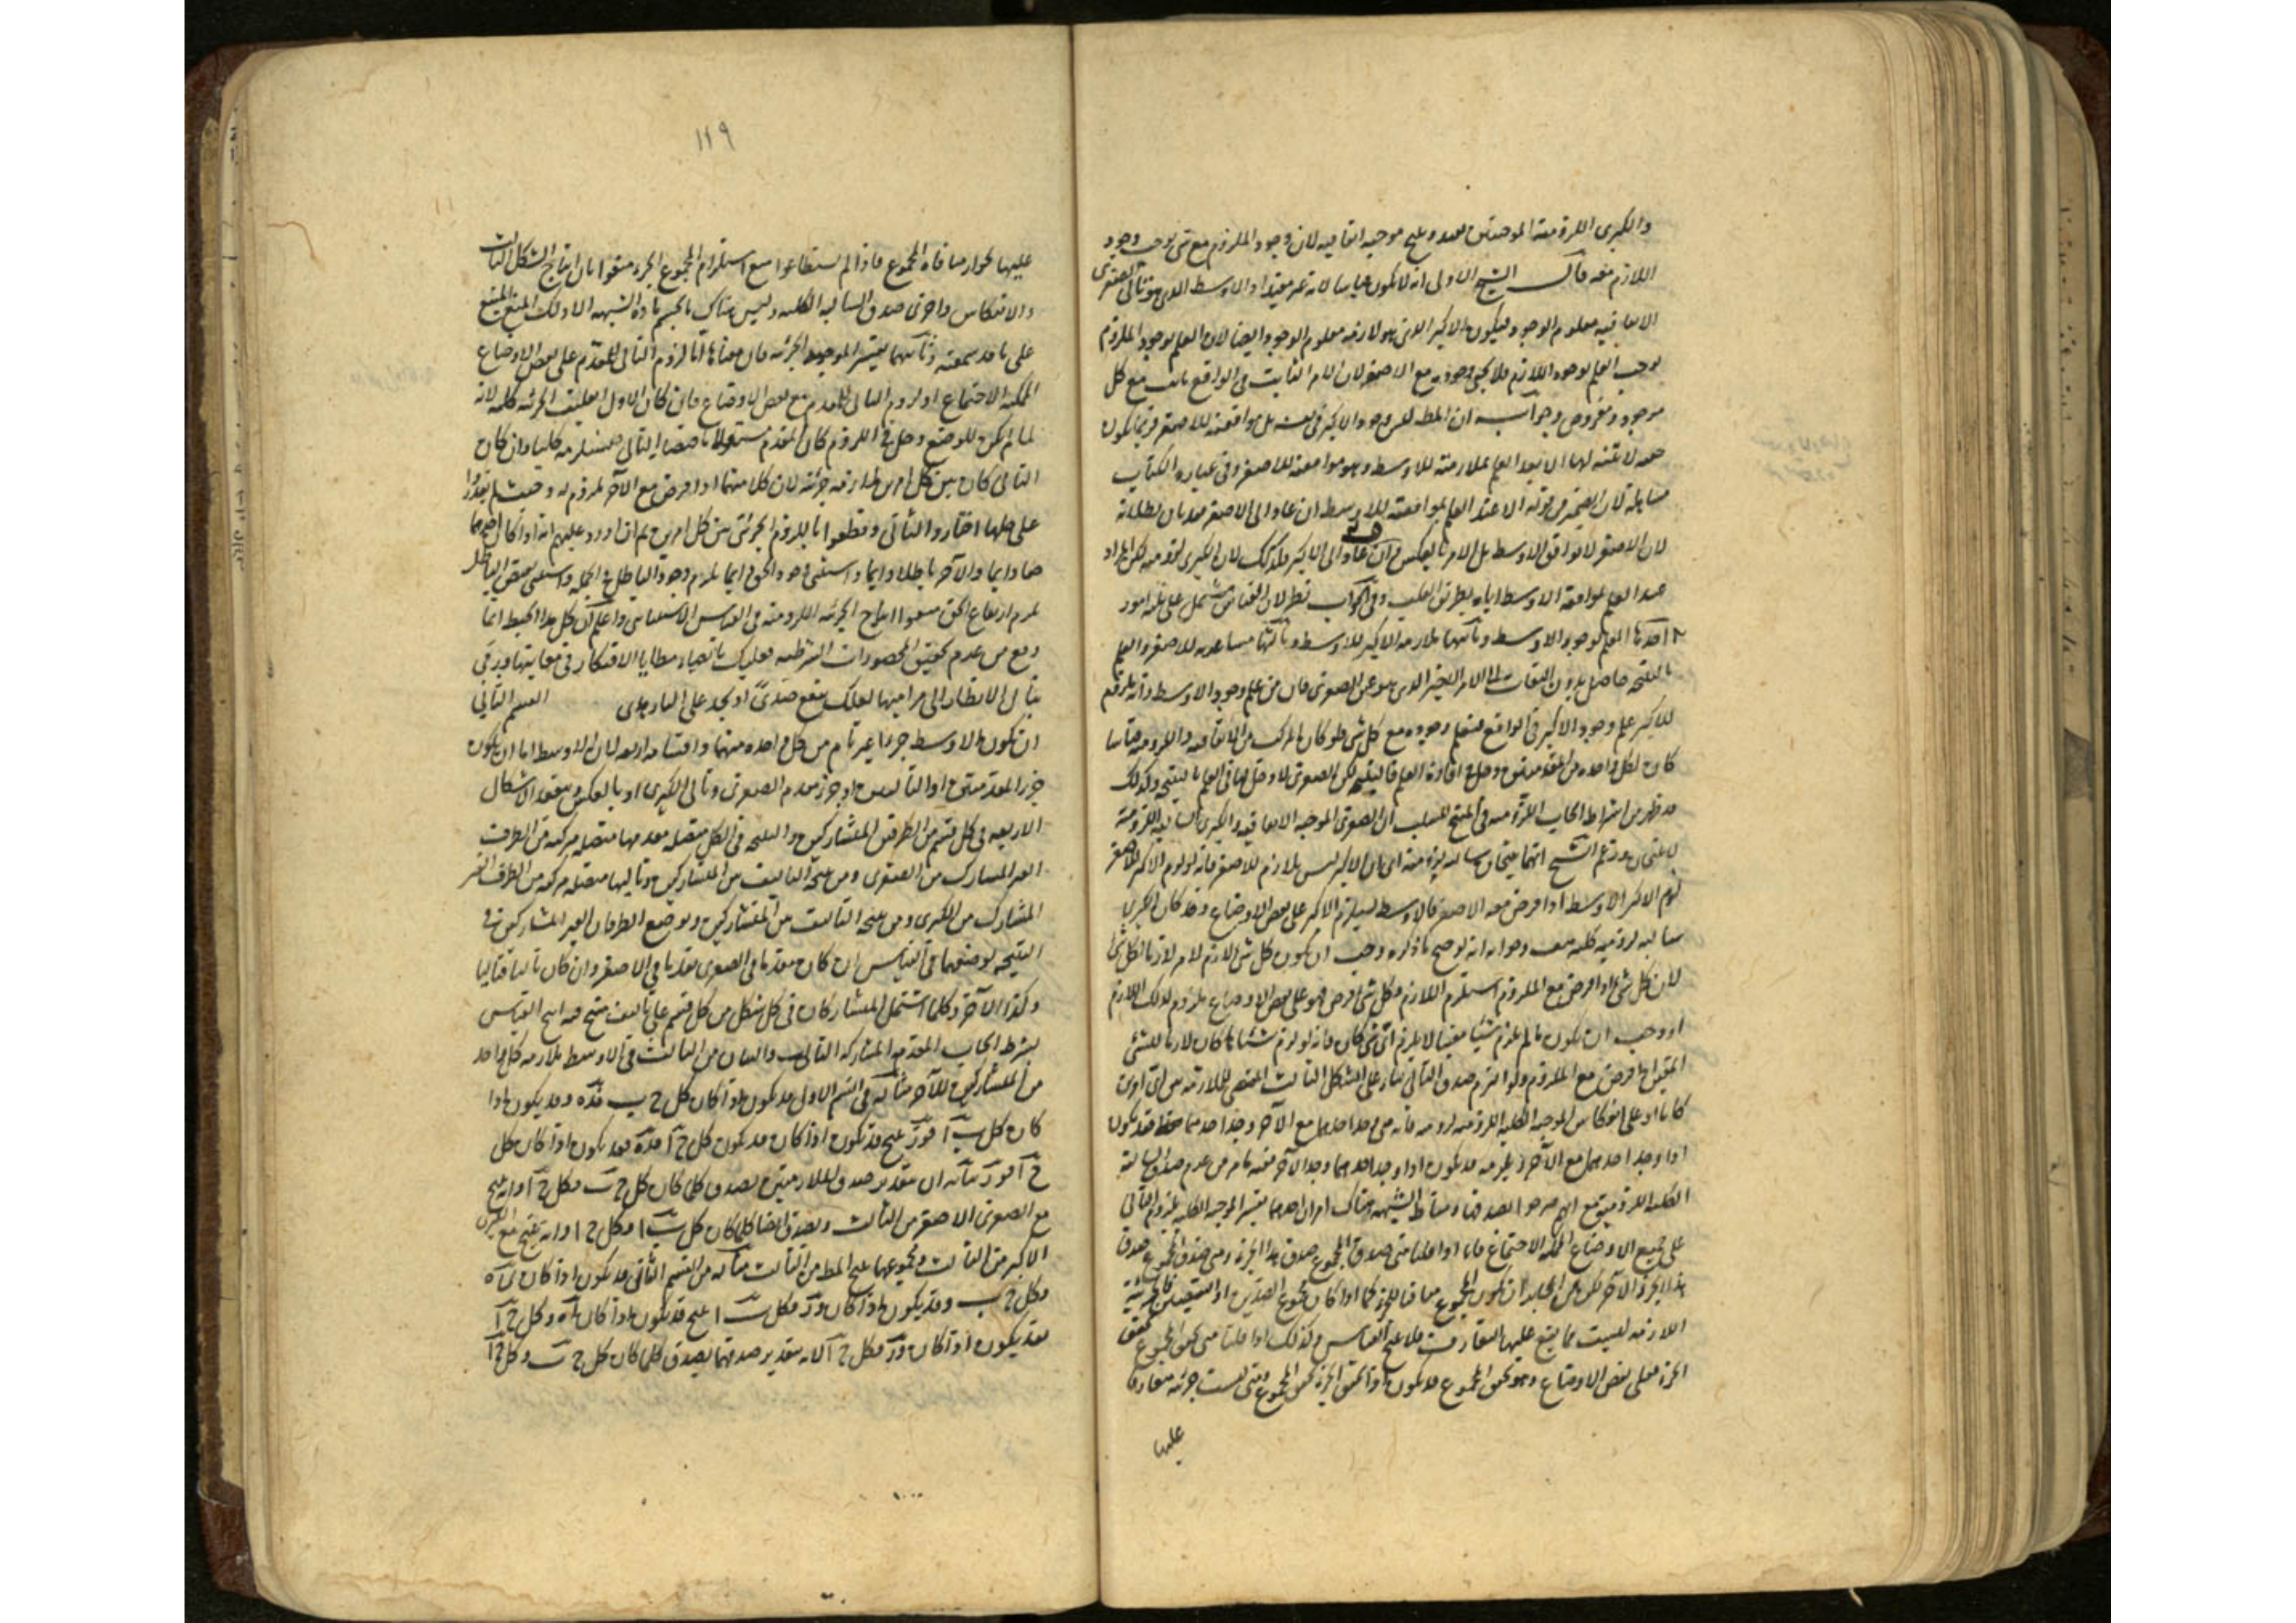 والكبرى اللزومية الموجبتين بعد وينتج موجبة اتفاقية لان وجود الملزوم مع شئ يوجب وجود
اللازم معه قال الشيخ الاولى انه لا يكون قياسا لانه غير مفيد اذ الاوسط الذى هو تالى الصغرى
الاتفاقية معلوم الوجود فيكون الاكبر الذى هو لازمه معلوم الوجود ايضا لان العلم بوجود الملزوم
يوجب العلم بوجود اللازم فلا يحتاج مع الاصغر لان الامر الثابت فى الواقع ثابت مع كل
موجود ومفروض وجوابه ان المط ليس وجود الاكبر فى نفسه بل موافقته للاصغر وربما يكون
لها الا بعد العلم بملازمته للاوسط وهو موافقته للاصغر وفى عبارة الكتاب
لان الضمير فى قوله الا عند العلم بموافقته للاوسط ان عاد الى الاصغر بطلانه
لان الاصغر لا يوافق الاوسط بل الامر بالعكس وان عاد الى الاكبر فكذلك لان الكبرى لزومية لكن المراد
عند العلم بموافقة الاوسط اياه بطريق القلب وفى الجواب نظر لان القياس مشتمل على ثلثة امور
احدها العلم بوجود الاوسط وثانيها ملازمة الاكبر للاوسط وثالثها للاصغر والعلم
بالنتيجة حاصل بدون التفات الى الامر الاخير الذى هو عين الصغرى فان من علم وجود الاوسط وانه ملزوم
للاكبر علم وجود الاكبر فى الواقع فيعلم وجوده مع كل شئ فلو كان المركب من الاتفاقية واللزومية قياسا
كان لكل واحدة من المقدمتين دخل فى افادة العلم بالنتيجة لكن الصغرى لا دخل لها فى العلم بالنتيجة وكذلك
قد ظهر من اشتراط ايجاب اللزومية فى المنتج للسلب ان الصغرى الموجبة الاتفاقية والكبرى السالبة اللزومية
لا ينتجان وزعم الشيخ انهما ينتجان سالبة لزومية اى ان الاكبر ليس بلازم للاصغر فانه لو لزم الاكبر للاصغر
لزم الاكبر الاوسط اذا فرض معه الاصغر فالاوسط يستلزم الاكبر على بعض الاوضاع وقد كان الكبرى
سالبة لزومية كلية هف وجوابه انه لو صح ما ذكره وجب ان يكون كل شئ لازم لامر لازما لكل شئ
لان كل شئ اذا فرض مع الملزوم استلزم اللازم وكل شئ فرض فهو على بعض الاوضاع ملزوم لذلك اللازم
او وجب ان يكون ما لم يلزم شيئا معينا لا يلزم اى شئ كان فانه لو لزم شيئا ما كان لازما للشئ
المعين اذا فرض مع الملزوم ولو التزم صدق التالى بناء على الشكل الثالث المقتضى للملازمة بين اى امرين
كانا او على انعكاس الموجبة الكلية اللزومية لزومية فانه متى وجد احدهما مع الآخر وجد احدهما فقط فقد يكون
اذا وجد احدهما وجد الآخر
الكلية اللزومية مع انهم صرحوا بصدقها ومناط الشبهة هناك امران احدهما تفسير الموجبة الكلية بلزوم التالى
على جميع الاوضاع الممكنة الاجتماع فانا اذا قلنا متى صدق المجموع صدق هذا الجزء ومتى صدق المجموع صدق
ان يكون المجموع منافيا للجزء كما اذا كان مجموع الضدين او النقيضين فالجزئية
اللازمة ليست مما يقع عليها التعارف فلا ينتج القياس وكذلك اذا قلنا متى تحقق المجموع تحقق
الجزء فعلى بعض الاوضاع وهو تحقق المجموع قد يكون اذا تحقق الجزء تحقق المجموع وهى ليست جزئية متعارفا
عليها
١١٩
عليها لجواز منافاة المجموع فاذا لم يستطاعوا منع استلزام المجموع الجزء منعوا بان انتاج الشكل الثالث
والانعكاس واخرى صدق السالبة الكلية وليس هناك ما يحسم مادة الشبهة الا ذلك المنع المنبه
على ما قد سمعته وثانيهما تفسير الموجبة الجزئية فان معناها اما لزوم التالى للمقدم على بعض الاوضاع
الممكنة الاجتماع او لزوم التالى للمقدم مع بعض الاوضاع فان كان الاول انقلبت الجزئية كلية لانه
لما لم يكن للوضع دخل فى اللزوم كان المقدم مستقلا باقتضاء التالى فيستلزمه كليا وان كان
الثانى كان بين كل امرين ملازمة جزئية لان كلا منهما اذا فرض مع الآخر ملزوم له وحيث لم يقدروا
على حلها اختاروا الثانى وقطعوا باللزوم الجزئى بين كل امرين ثم ان اورد عليهم انه اذا كان احدهما
حقا دايما والآخر باطلا دايما واستثنى وجود الحق دايما يلزم وجود الباطل فى الجملة واستثنى نقيض الباطل
يلزم ارتفاع الحق منعوا انتاج الجزئية اللزومية فى القياس الاستثنائى واعلم ان كل هذا الخبط انما
وقع من عدم تحقيق المحصورات الشرطية فعليك بانضاء مطايا الافتكار فى معانيها
الانظار الى مراميها لعلك تنقع صدى او تجد على النار هدى القسم الثانى
ان يكون الاوسط جزءا غير تام من كل واحدة منهما واقسامه اربعة لان الاوسط اما ان يكون
جزء المقدمتين او التاليين او جزء مقدم الصغرى وتالى الكبرى او بالعكس وينعقد الاشكال
الاربعة فى كل قسم من الطرفين المتشاركين والنتيجة فى الكل متصلة مقدمها متصلة مركبة من الطرف
الغير المشارك من الصغرى ومن نتيجة التاليف من المتشاركين وتاليها متصلة مركبة من الطرف الغير
المشارك من الكبرى ومن نتيجة التاليف من المتشاركين ويوضع الطرفان الغير المشاركين فى
النتيجة بوضعهما فى القياس ان كان مقدما فى الصغرى مقدما فى الاصغر وان كان تاليا فتاليا
وكذا الآخر وكلما اشتمل المتشاركان فى كل شكل من كل قسم على تاليف منتج انتج القياس
بشرط ايجاب المقدمة المشاركة التالى والقياس من الثالث فى الاوسط ملازمة كل واحد
من المتشاركين للآخر مثاله فى القسم الاول قد يكون اذا كان كل ج ب فده وقد يكون اذا
كان كل ب ا فور ينتج قد يكون اذا كان قد يكون كل ج ا فده فقد يكون اذا كان كل
ج ا فور بيانه ان بتقدير صدق الملازمتين يصدق كلما كان كل ج ب فكل ج ا وانه ينتج
مع الصغرى الاصغر من الثالث ويصدق ايضا كلما كان كل ب ا فكل ج ا وانه ينتج مع الكبرى
الاكبر من الثالث ومجموعهما ينتج المط من الثالث مثاله من القسم الثانى قد يكون اذا كان ده
فكل ج ب وقد يكون اذا كان ور فكل ب ا ينتج قد يكون اذا كان ده وكل ج ا
فقد يكون اذا كان ور فكل ج ا لانه بتقدير صدقهما يصدق كلما كان كل ج ب وكل ج ا